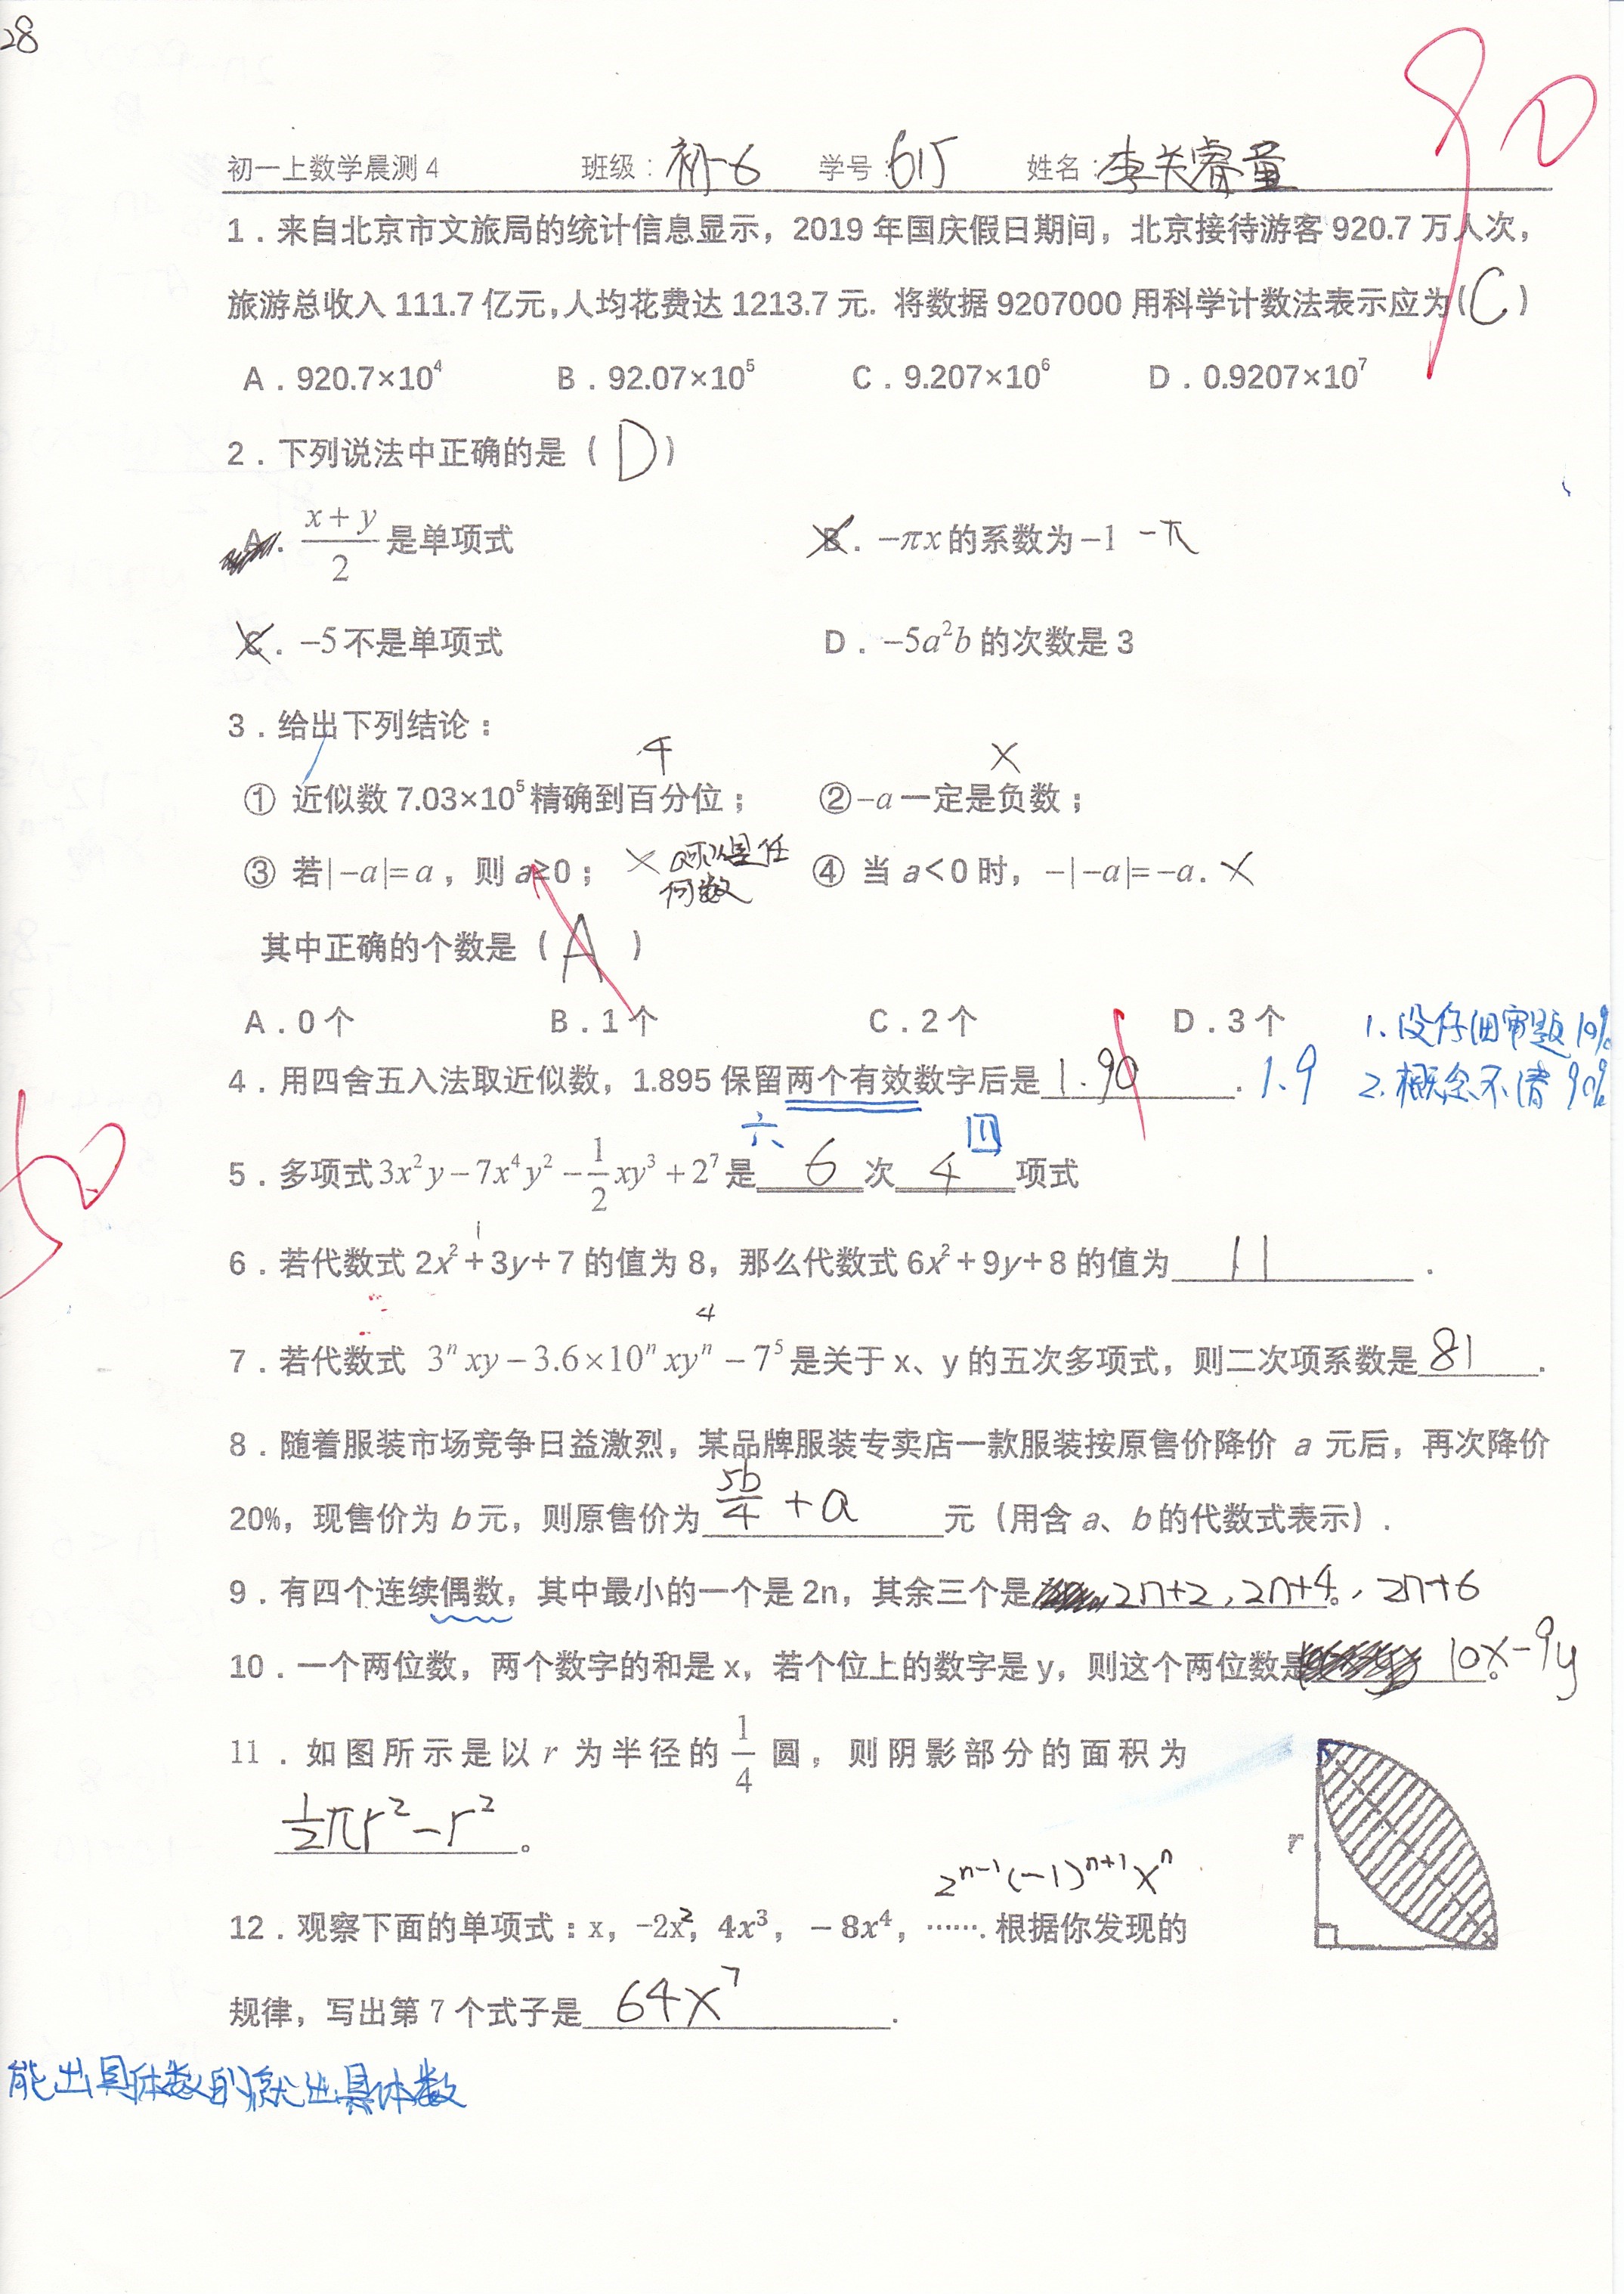 28
90
初一上数学晨测 4 班级: 初一6 学号 615 姓名: 李关睿童
1．来自北京市文旅局的统计信息显示，2019 年国庆假日期间，北京接待游客 920.7 万人次，
旅游总收入 111.7 亿元，人均花费达 1213.7 元. 将数据 9207000 用科学计数法表示应为( C )
A．920.7×10⁴ B．92.07×10⁵ C．9.207×10⁶ D．0.9207×10⁷
2．下列说法中正确的是（ D ）
A．(x+y)/2 是单项式 B．−πx 的系数为 −1 −π
C．−5 不是单项式 D．−5a²b 的次数是 3
3．给出下列结论：
千 ×
① 近似数 7.03×10⁵ 精确到百分位； ②−a 一定是负数；
③ 若|−a|= a，则 a≥0； × a可以是任何数 ④ 当 a<0 时，−|−a|= −a. ×
其中正确的个数是（ A ）
A．0 个 B．1 个 C．2 个 D．3 个 1、没仔细审题 10%
4．用四舍五入法取近似数，1.895 保留两个有效数字后是 1.90 . 1.9 2、概念不清 90%
六 四
5．多项式 3x²y − 7x⁴y² − 1/2 xy³ + 2⁷ 是 6 次 4 项式
50
1
6．若代数式 2x²+3y+7 的值为 8，那么代数式 6x²+9y+8 的值为 11 .
4
7．若代数式 3ⁿxy − 3.6×10ⁿxyⁿ − 7⁵ 是关于 x、y 的五次多项式，则二次项系数是 81 .
8．随着服装市场竞争日益激烈，某品牌服装专卖店一款服装按原售价降价 a 元后，再次降价
20%，现售价为 b 元，则原售价为 5b/4 + a 元（用含 a、b 的代数式表示）.
9．有四个连续偶数，其中最小的一个是 2n，其余三个是 2n+2，2n+4。，2n+6
10．一个两位数，两个数字的和是 x，若个位上的数字是 y，则这个两位数是 10x−9y 。
11．如图所示是以 r 为半径的 1/4 圆，则阴影部分的面积为
1/2πr²−r² 。
r
2ⁿ⁻¹(−1)ⁿ⁺¹xⁿ
12．观察下面的单项式：x，-2x²，4x³，−8x⁴，……. 根据你发现的
规律，写出第 7 个式子是 64x⁷ .
能出具体数的就出具体数